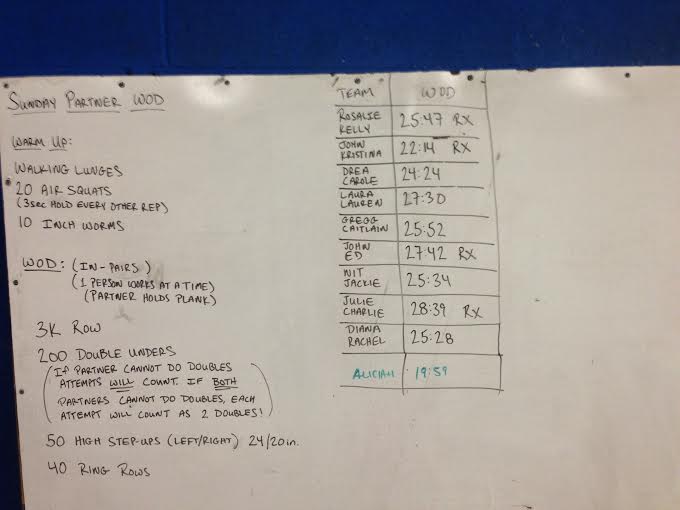 SUNDAY PARTNER WOD
WARM UP:
WALKING LUNGES
20 AIR SQUATS
(3sec HOLD EVERY OTHER REP)
10 INCH WORMS
WOD: (IN-PAIRS)
(1 PERSON WORKS AT A TIME)
(PARTNER HOLDS PLANK)
3K ROW
200 DOUBLE UNDERS
(IF PARTNER CANNOT DO DOUBLES
ATTEMPTS WILL COUNT. IF BOTH
PARTNERS CANNOT DO DOUBLES, EACH
ATTEMPT WILL COUNT AS 2 DOUBLES!)
50 HIGH STEP-UPS (LEFT/RIGHT) 24/20in.
40 RING ROWS
TEAM WOD
ROSALIE
KELLY 25:47 RX
JOHN
KRISTINA 22:14 RX
DREA
CAROLE 24:24
LAURA
LAUREN 27:30
GREGG
CAITLAIN 25:52
JOHN
ED 27:42 RX
WIT
JACKIE 25:34
JULIE
CHARLIE 28:39 RX
DIANA
RACHEL 25:28
ALICIAH 19:59